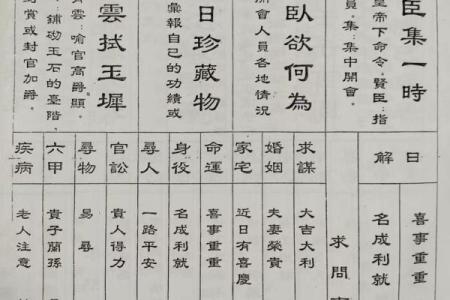 臣集一時
皇帝下命令，賢臣：指
會員。集：集中開會。
臥欲何為
會人員各地情況
日珍藏物
彙報自己的功績或
雲拭玉墀
青雲：喻官高爵顯。
：鋪砌玉石的臺階，
封賞或封官加爵。
日解
喜事重重
名成利就
求問
求謀
大吉大利
婚姻
夫妻榮貴
家宅
近日有喜慶
命運
喜事重重
身役
名成利就
尋人
一路平安
官訟
貴人得力
尋物
易尋
六甲
貴子蘭孫
疾病
老人注意